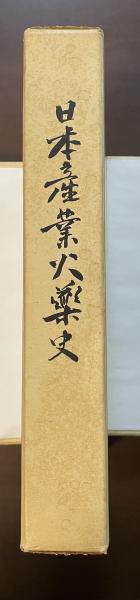 日本産業火薬史